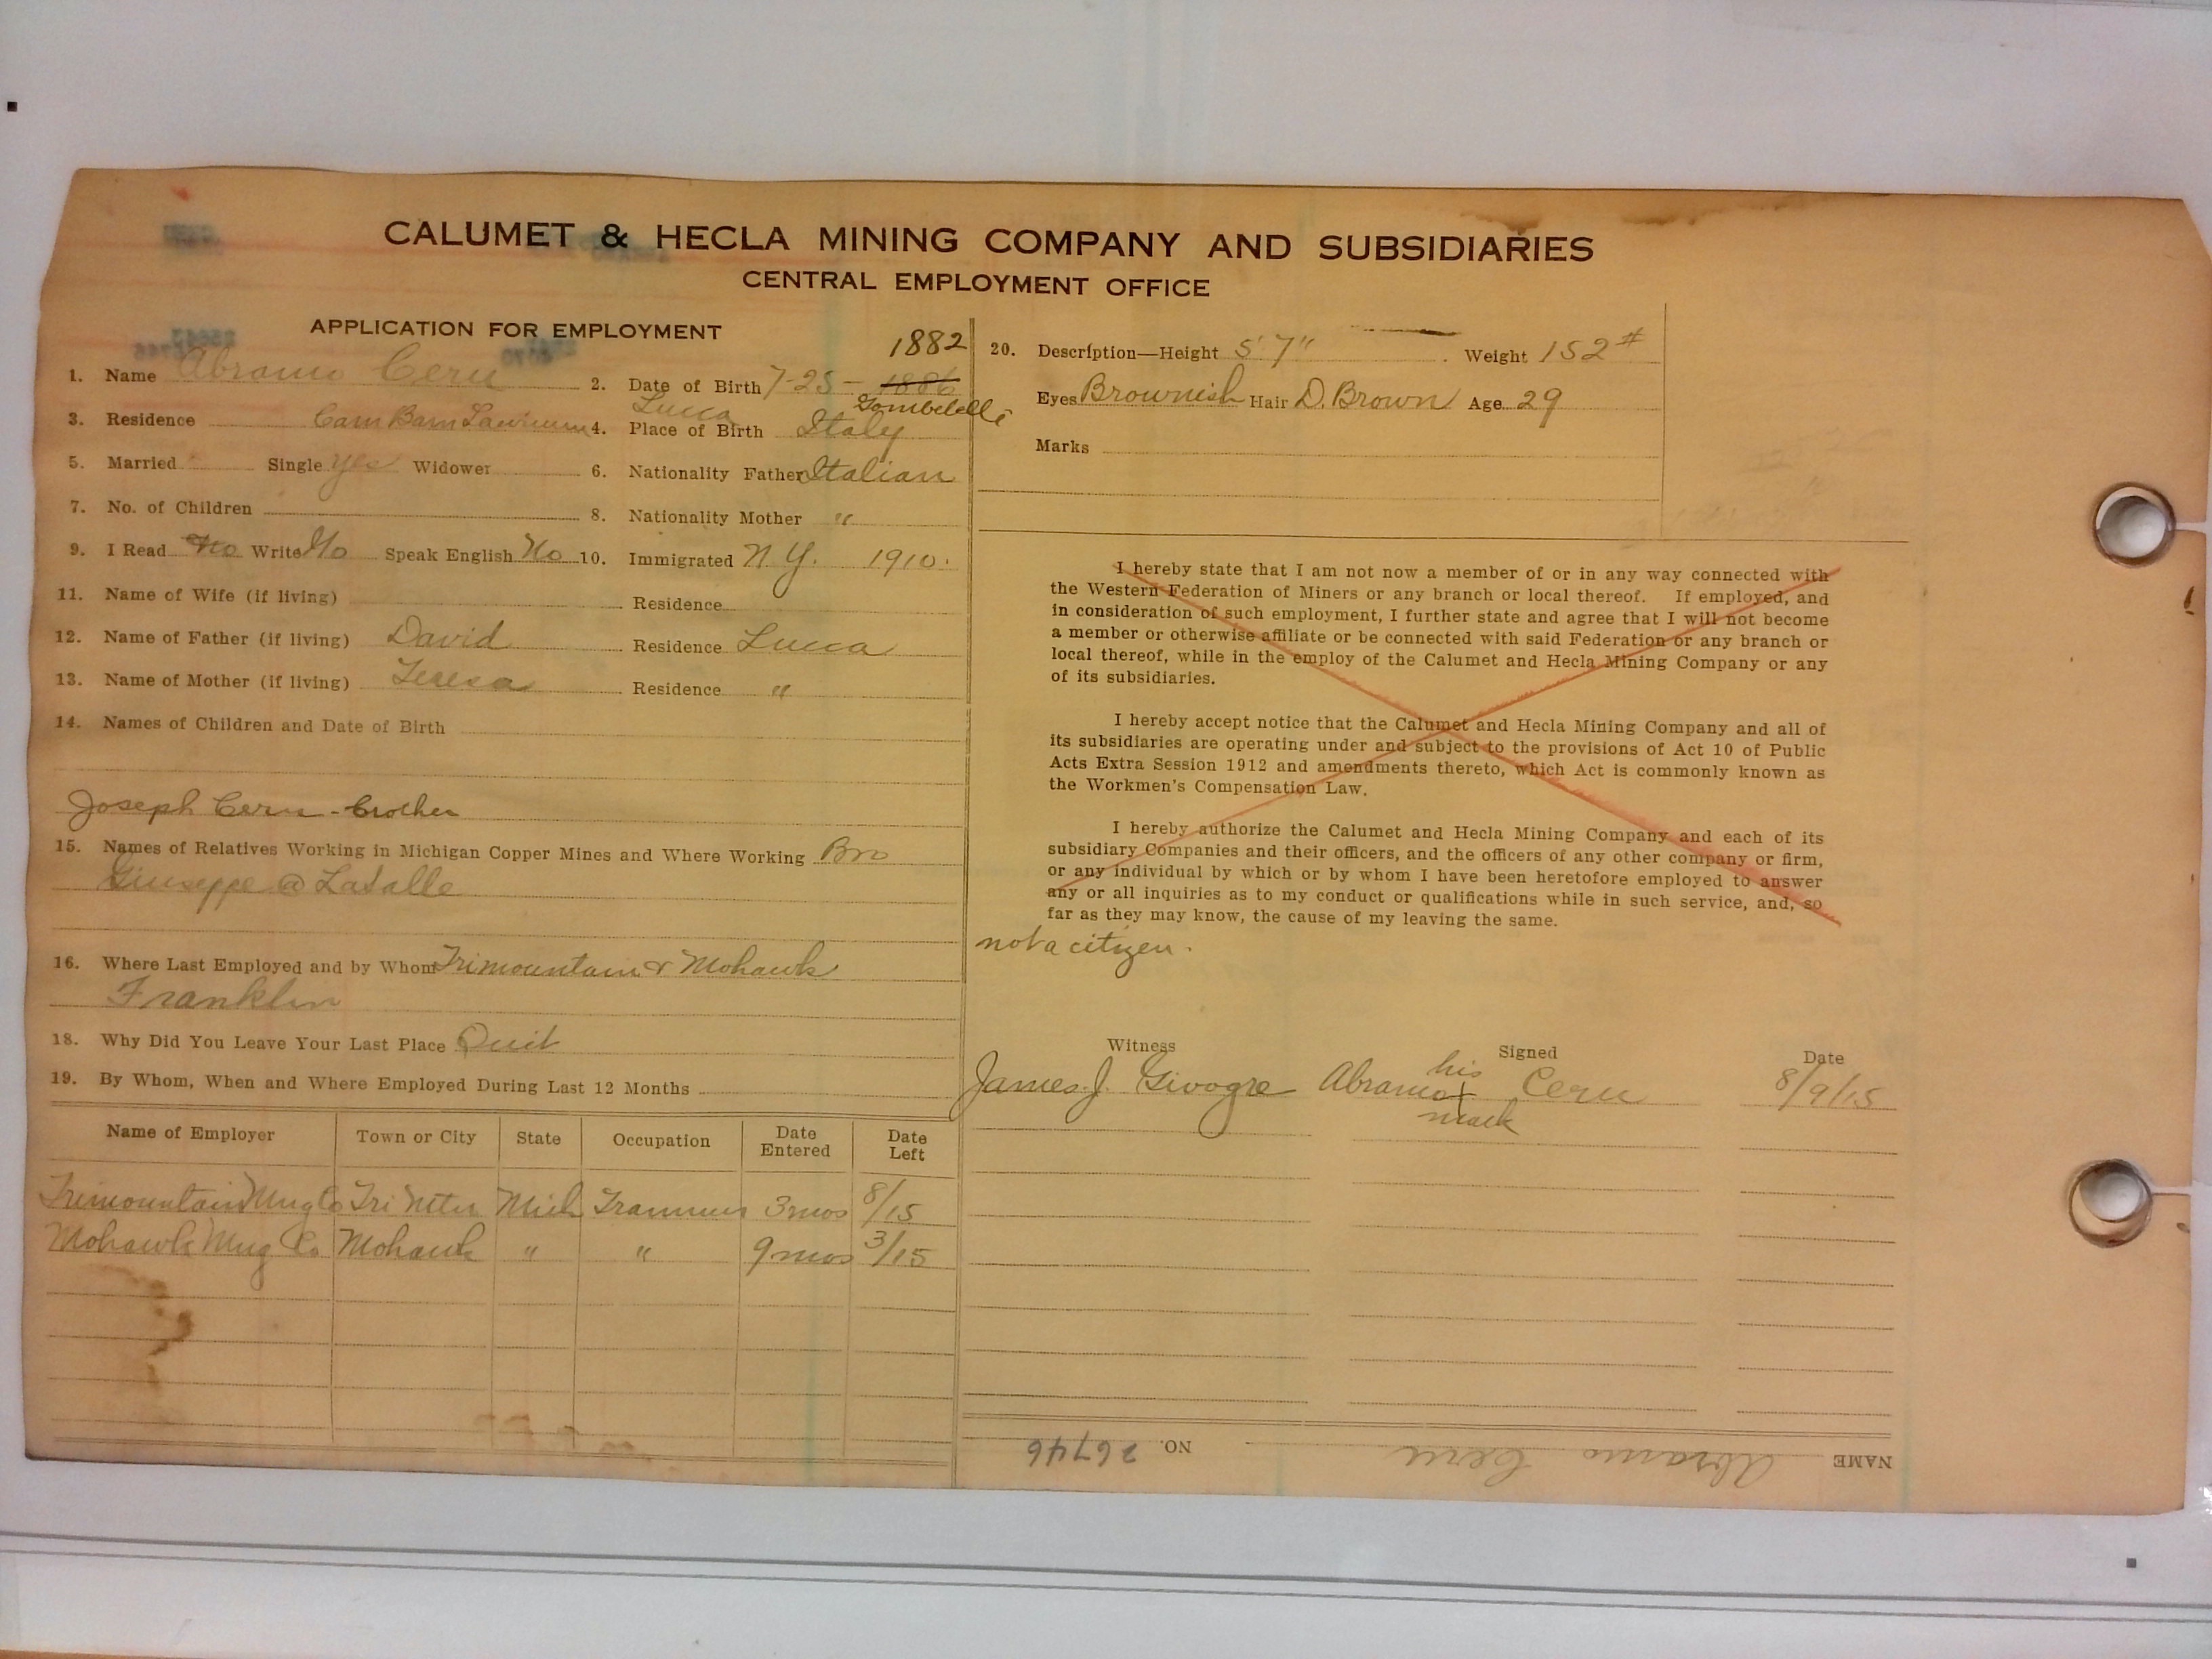 CALUMET & HECLA MINING COMPANY AND SUBSIDIARIES
CENTRAL EMPLOYMENT OFFICE
APPLICATION FOR EMPLOYMENT
1. Name Abramo Ceru
1882
2. Date of Birth 7-25- 1886
3. Residence Car Barn Laurium
Lucca Gombitelli
4. Place of Birth Italy
5. Married Single Yes Widower
6. Nationality Father Italian
7. No. of Children
8. Nationality Mother "
9. I Read No Write No Speak English No
10. Immigrated N.Y. 1910.
11. Name of Wife (if living) Residence
12. Name of Father (if living) David Residence Lucca
13. Name of Mother (if living) Teresa Residence "
14. Names of Children and Date of Birth
Joseph Ceru - brother
15. Names of Relatives Working in Michigan Copper Mines and Where Working Bro
Giuseppe @ LaSalle
16. Where Last Employed and by Whom Trimountain & Mohawk
Franklin
18. Why Did You Leave Your Last Place Quit
19. By Whom, When and Where Employed During Last 12 Months
Name of Employer Town or City State Occupation Date Entered Date Left
Trimountain Mng Co Tri Mtn Mich Trammer 3 mos 8/15
Mohawk Mng Co Mohawk " " 9 mos 3/15
20. Description—Height 5' 7" Weight 152#
Eyes Brownish Hair D. Brown Age 29
Marks
I hereby state that I am not now a member of or in any way connected with
the Western Federation of Miners or any branch or local thereof. If employed, and
in consideration of such employment, I further state and agree that I will not become
a member or otherwise affiliate or be connected with said Federation or any branch or
local thereof, while in the employ of the Calumet and Hecla Mining Company or any
of its subsidiaries.
I hereby accept notice that the Calumet and Hecla Mining Company and all of
its subsidiaries are operating under and subject to the provisions of Act 10 of Public
Acts Extra Session 1912 and amendments thereto, which Act is commonly known as
the Workmen's Compensation Law.
I hereby authorize the Calumet and Hecla Mining Company and each of its
subsidiary Companies and their officers, and the officers of any other company or firm,
or any individual by which or by whom I have been heretofore employed to answer
any or all inquiries as to my conduct or qualifications while in such service, and, so
far as they may know, the cause of my leaving the same.
not a citizen.
Witness Signed Date
his
James J. Givogre Abramo + Ceru 8/9/15
mark
NAME Abramo Ceru NO. 26746